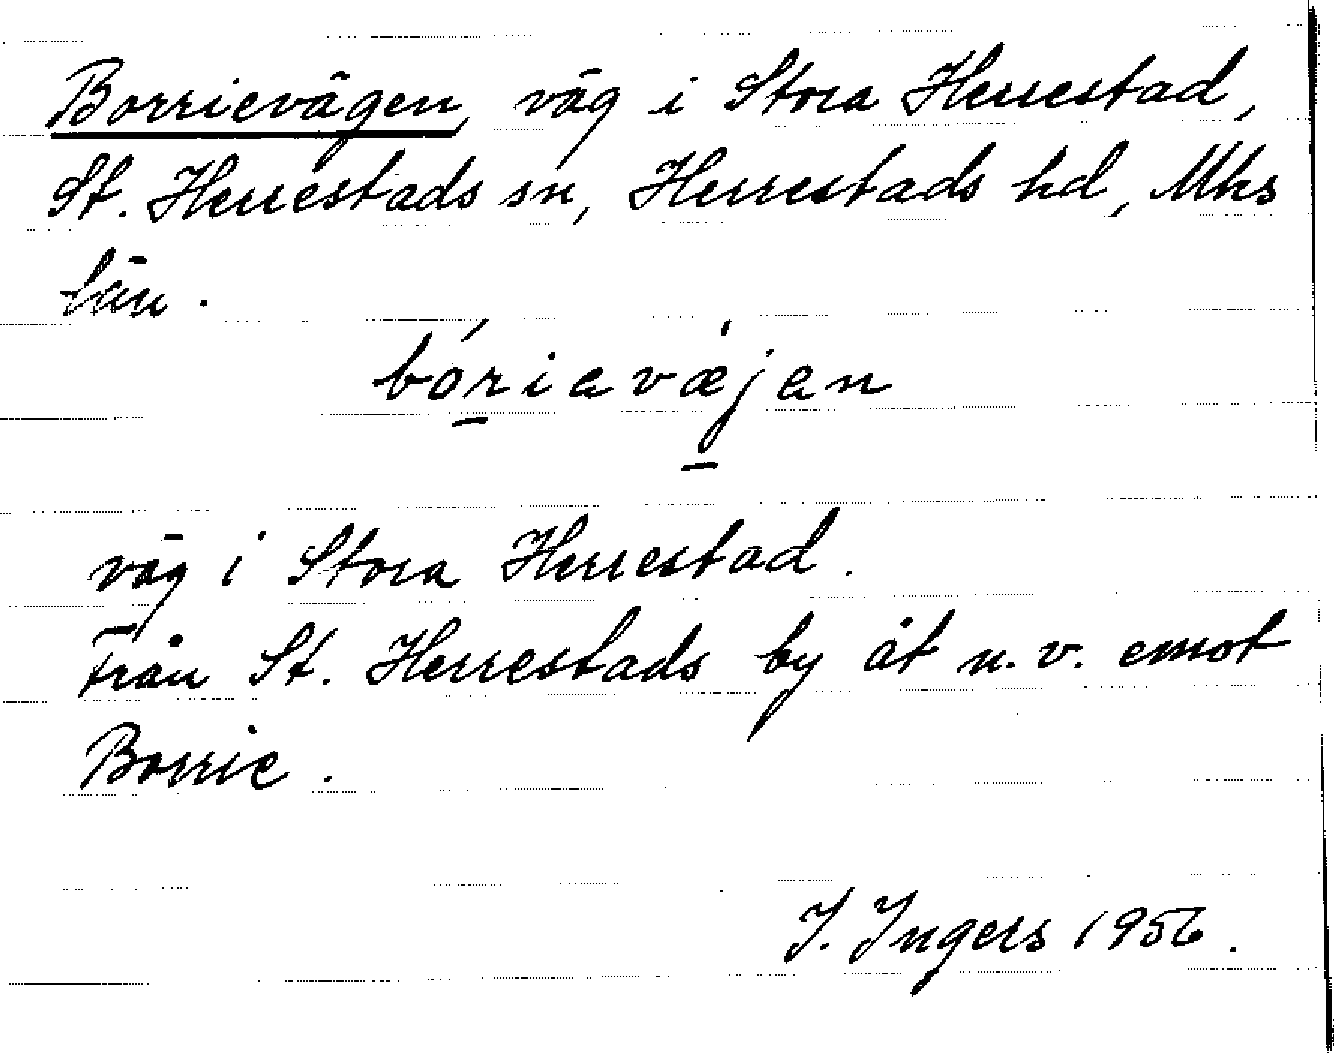 Borrievägen, väg i Stora Herrestad,
St. Herrestads sn, Herrestads hd, Mhs
län.
bórievæ̀jen
väg i Stora Herrestad.
Från St. Herrestads by åt n.v. emot
Borrie.
I. Ingers 1956.